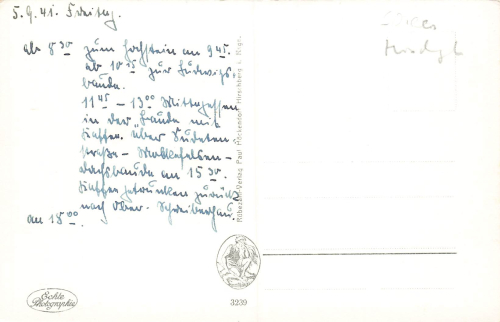 5.9.41. Freitag.
ab 8³⁰ zum Hochstein an 9⁴⁵.
ab 10¹⁵ zur Ludwigs-
baude.
11⁴⁵ – 13⁰⁰ Mittagessen
in der Baude mit
Kaffee. über Sudeten-
straße –
an 15³⁰.
Kaffee getrunken zurück
nach Ober-Schreiberhau.
an 18⁰⁰.
Rübezahl-Verlag Paul Höckendorf, Hirschberg i. Rsgb.
Echte
Photographie
3239